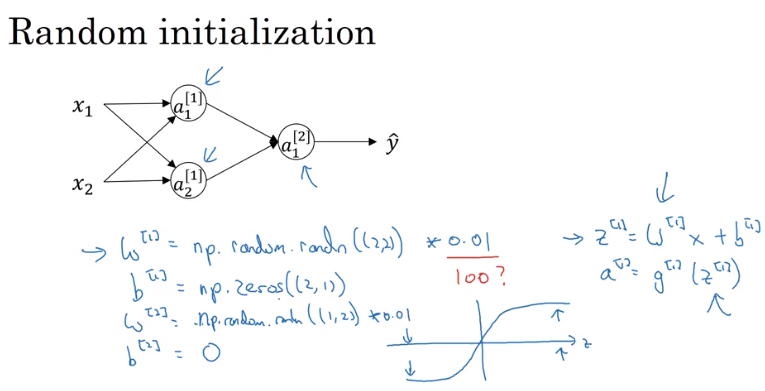 Random initialization
x₁ a₁^[1]
a₁^[2] ŷ
x₂ a₂^[1]
W^[1] = np.random.randn((2,2)) * 0.01
100?
b^[1] = np.zeros((2,1))
W^[2] = np.random.randn((1,2)) * 0.01
b^[2] = 0
z^[1] = W^[1] x + b^[1]
a^[1] = g^[1](z^[1])
z